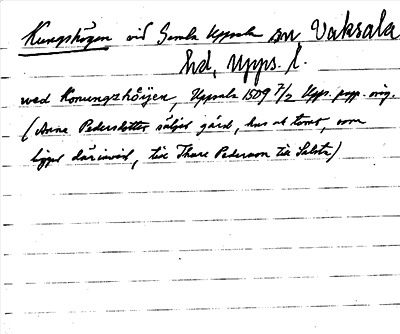 Kungshögen vid Gamla Uppsala sn Vaksala
hd, Upps. l.
wed Konungzhöijen, Uppsala 1509 7/2 Upps. papp. orig.
(Anna Pedersdotter säljer gård, hus ok tomt, som
ligger därinvid, till Thure Pederson till Salsta)